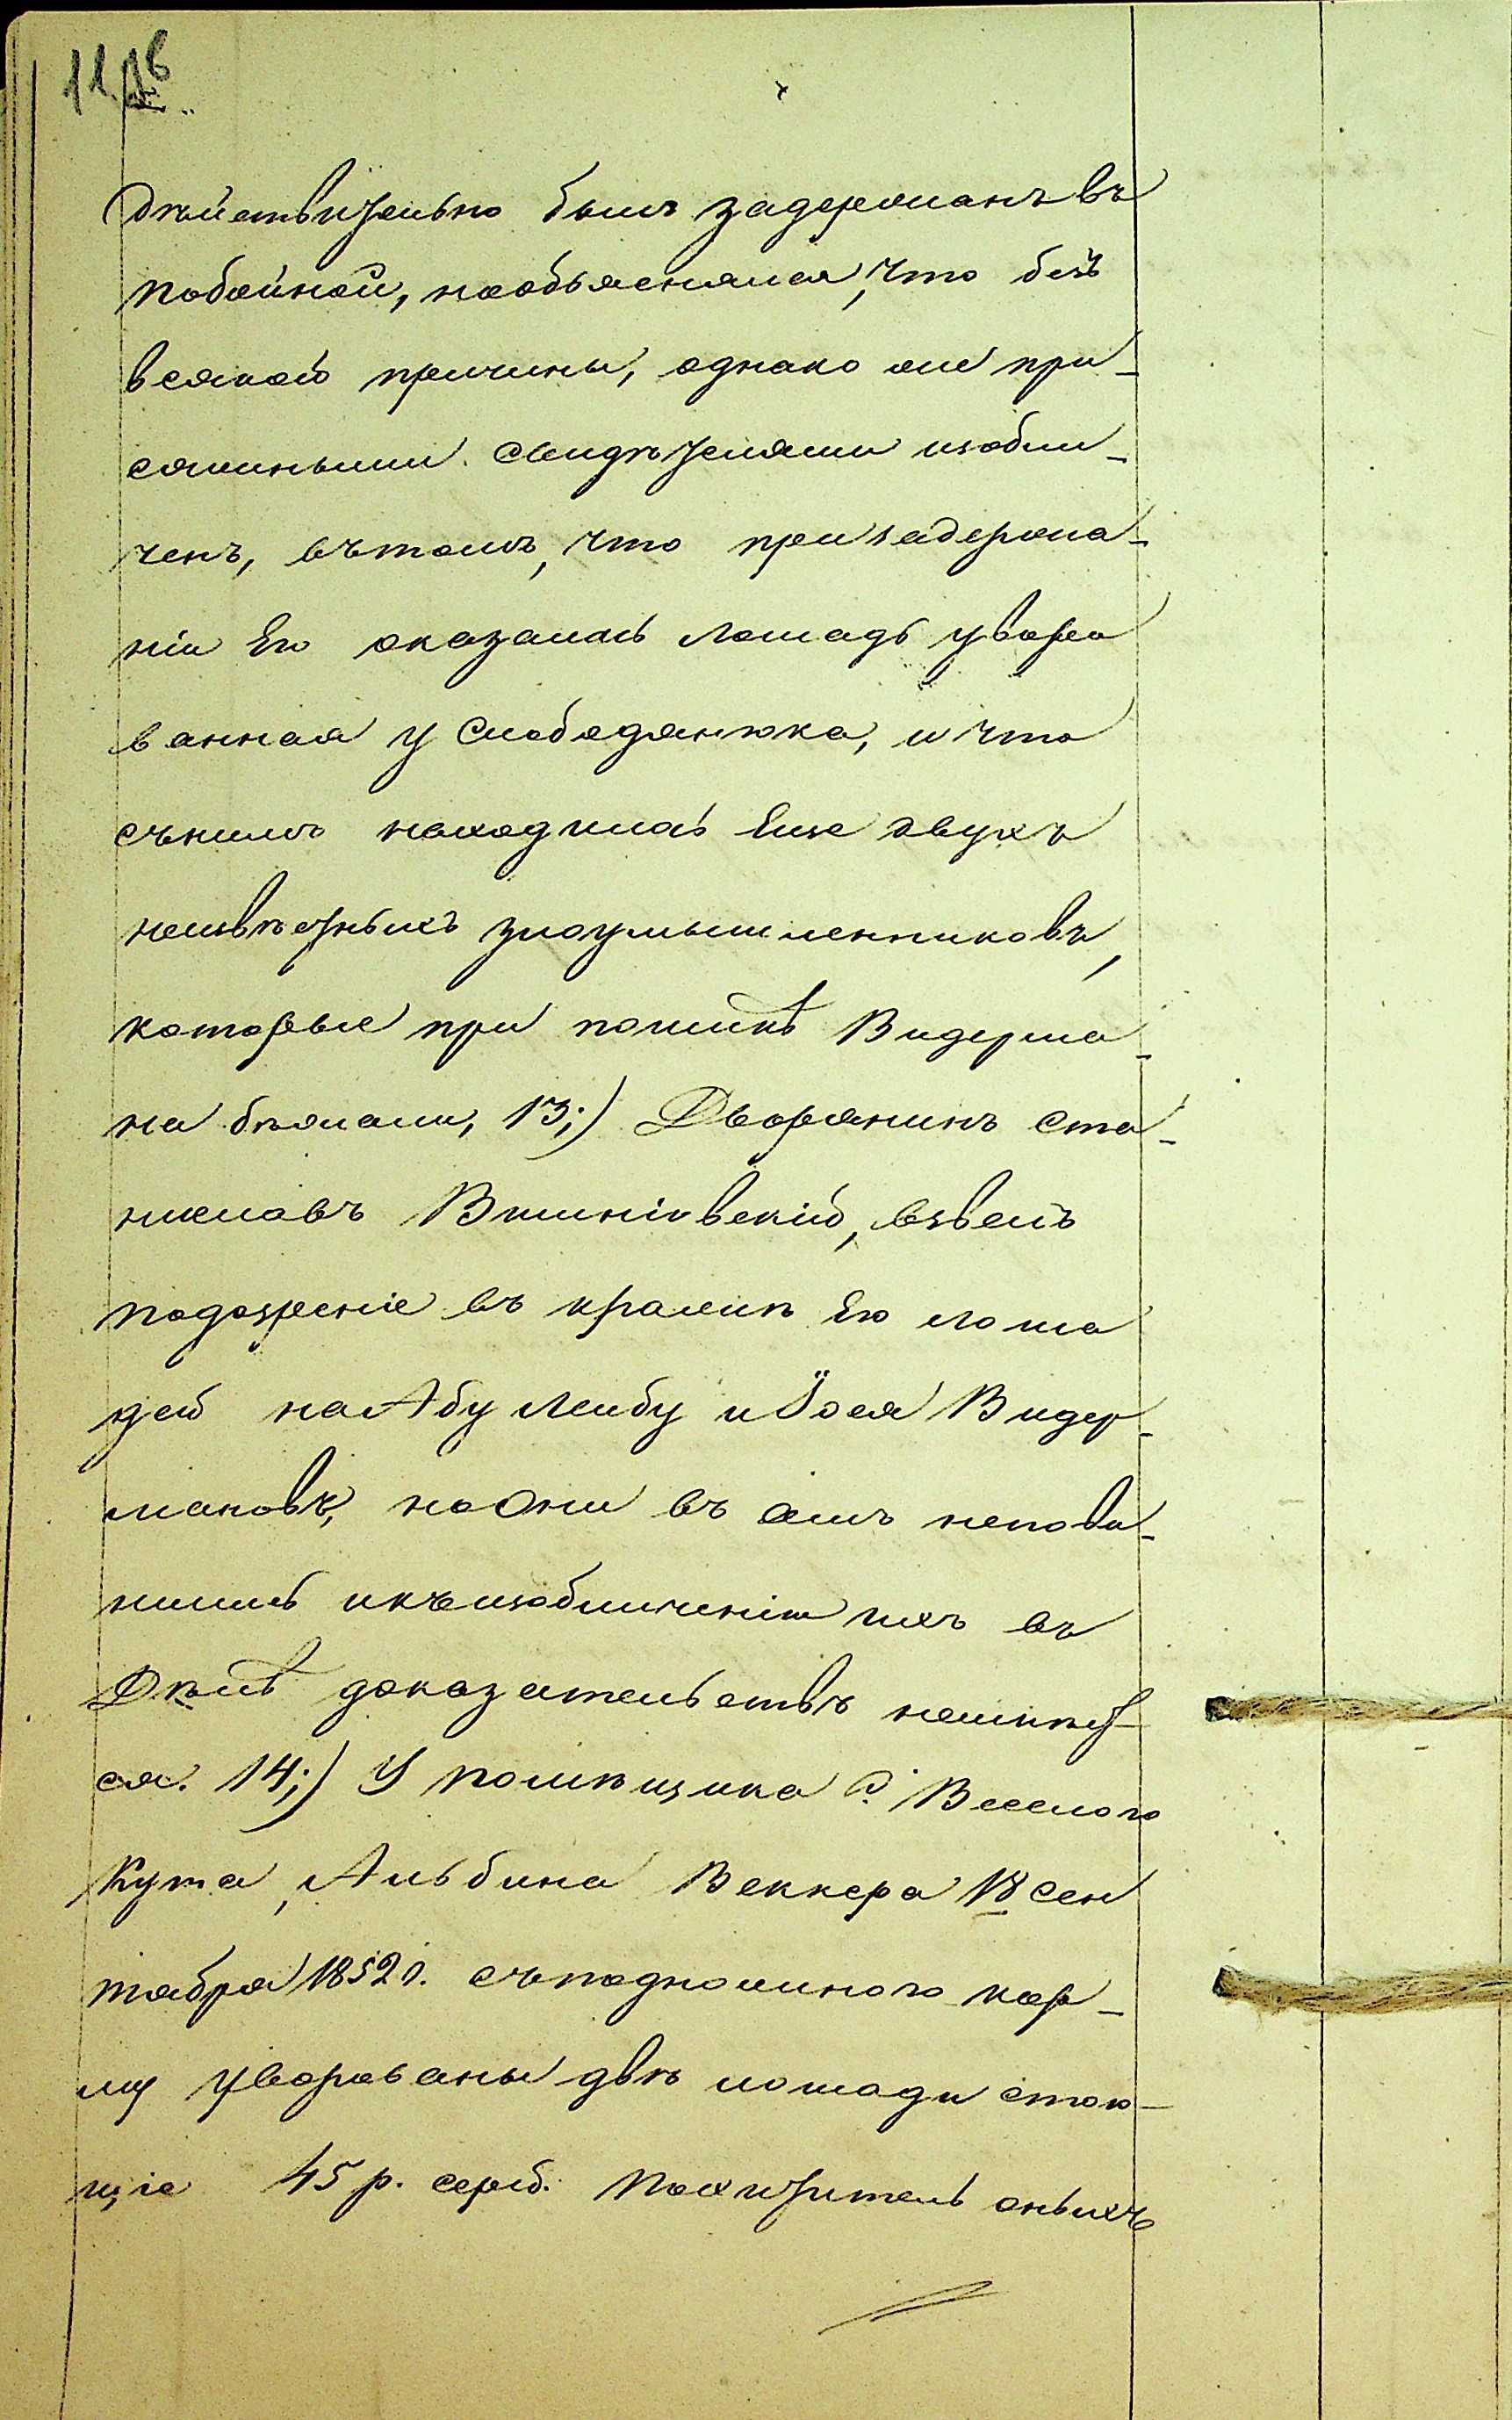 11.
дѣйствительно былъ задержанъ въ
побойной, но объяснялся, что безъ
всякой причины, однако же при-
сяжными свидѣтелями изобли-
ченъ, въ томъ, что при задержа-
ніи Его оказалась лошадь уворо
ванная у Слободянюка, и что
съ нимъ находилась Еще двухъ
неизвѣстныхъ злоумышленниковъ,
которые при поимкѣ Видерма-
на бѣжали, 13;) Дворянинъ Ста-
ниславъ Вишнівскій, взвелъ
подозреніе въ кражѣ Его лоша
дей на Абу Лейбу и Іося Видер-
мановъ, но Они въ семъ непови-
нились и къ изобличенію ихъ въ
Дѣлѣ доказательствъ неимѣет-
ся. 14;) У помѣщика с. Веселого
Кута, Альбина Веккера 18 Сен
тября 1852 г. съ подножного кор-
му уворованы двѣ лошади стою-
щіе 45 р. сереб. Похититель оныхъ